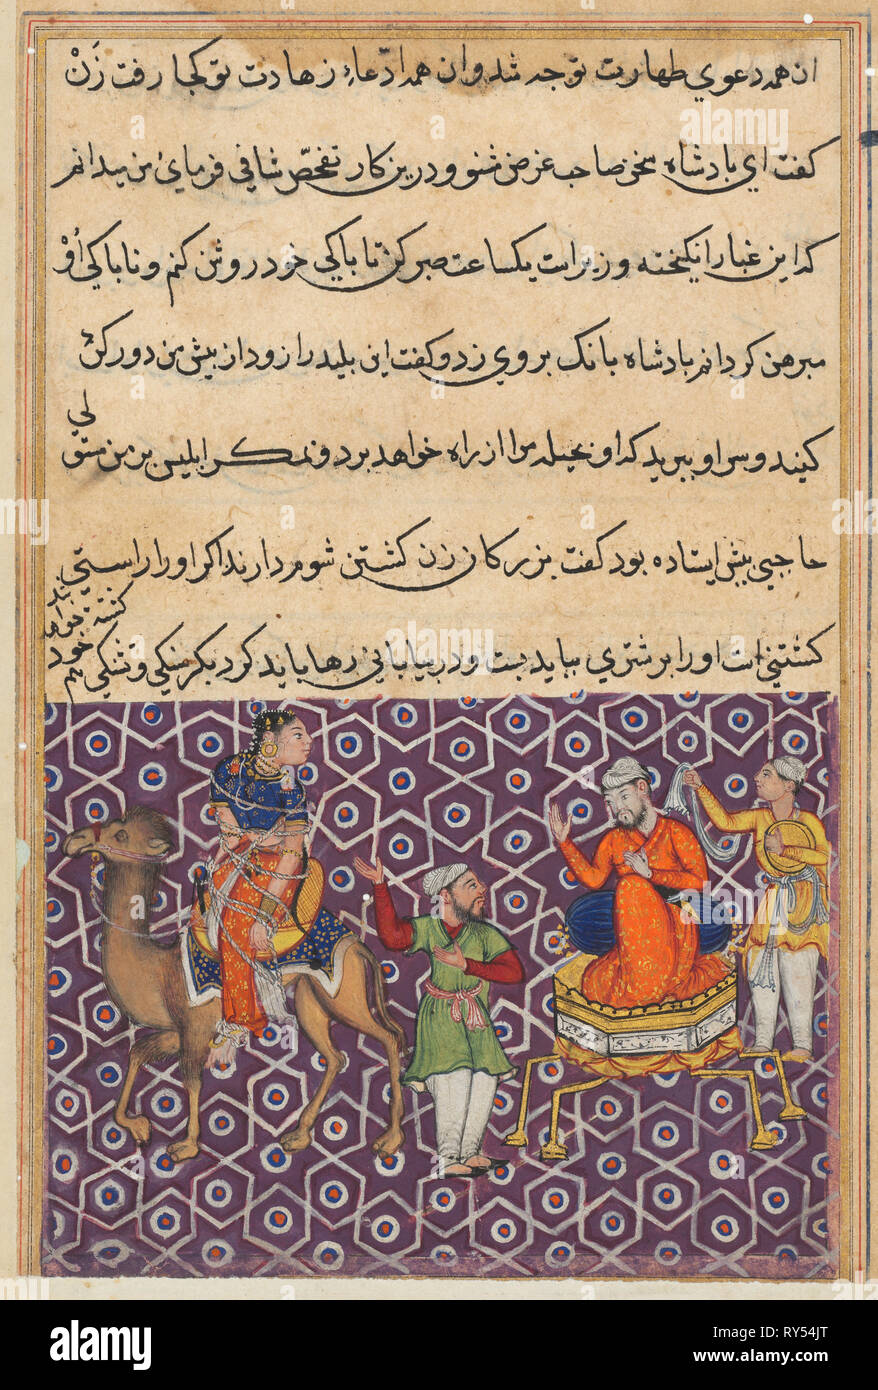 ان همه دعوی طهارت تو چه شد و ان همه ادّعاءِ زهادت تو کجا رفت زَنْ
کفت ای بادشاه سخن صاحب غرض مشنو و درین کار تفحّص شافی فرمای من میدانم
که این غبار انکیخته وزیر است یکساعت صبر کن تا باکی خود روشن کنم و ناباکی اُوْ
مبرهن کردانم بادشاه بانک بروی زد و کفت این بلید را زود از بیش من دور کنْ
کنید و سر او ببرید که او بحیله مرا از راه خواهد برد و بمکر ابلیس بر من مستو
لی
حاجبی بیش ایستاده بود کفت بزرکان زن کشتن شوم دارند اکر او را راستی
کشتنی است او را بر شتری بباید بست و در بیابانی رها باید کرد یکر سنکی و تشنکی هم
خود
کشته خواهد
شد
alamy
Image ID: RY54JT
www.alamy.com